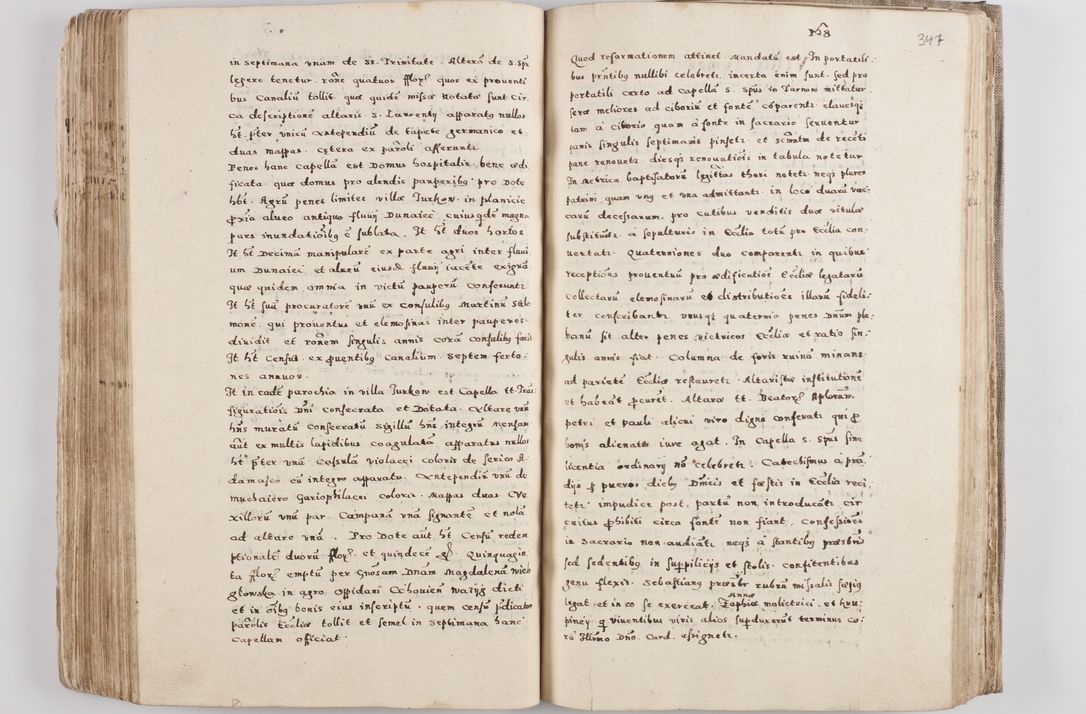 in septimana vnam de SS. Trinitate. Alterã de S. Spũ
legere tenetur. rone quatuor fflor. quos ex prouenti
bus Canaliũ tollit. quæ quidẽ missæ Notatæ sunt Cir,
ca descriptionẽ altaris. S. Laurenty apparatũ nullos
ht. pter vnicũ Antependiũ de tapete germanico et
duas mappas. Cętera ex paroli afferuntr
Penes hanc Capellã est Domus hospitalis. bene ædi
ficata. quæ domus pro alendis pauperibq pro Dote
hbt. Agrũ penes limites villæ Jurkow. in planicie
pxia alueo antiquo fluuy Dunaiec. cuius qde magna
pars inundatioibq ẽ sublata. It ht duos hortos
It ht Decimã manipularẽ ex parte agri inter fluui
um Dunaiec et alueũ eiusd fluuy iacẽte exiguã
quæ quidem omnia in victũ pauperũ Conferuntr.
It ht suũ procuratorẽ vnũ ex Consulibq Martinũ Salo
monẽ. qui prouentus et elemosinas inter pauperes
diuidit et ronem singulis annis corã Consulibq facit
It ht Censũ. ex puentibq Canalium Septem ferto,
nes annuos.
It in eadẽ parochia in villa Jurkow est Capella tt. Trãs
figuratiois Dni Consecrata et Dotata. Altare vnũ
hns muratũ Consecratũ Sigillũ hns integrũ mensam
aũt ex multis lapidibus Coagulatã apparatus nullos
ht pter vnã. Casulã violacei coloris de serico A
damasco cũ integro apparatu. Antependiũ vnũ de
muchaiero Gariophilacei coloris. Mappas duas. Ve
xillorũ vnũ par. Campanã vnã signantẽ et nolã
ad altare vnã. Pro Dote aut. ht Censũ redem
ptionalẽ duorũ fflor. et quindecẽ gr. Quinquagin
ta fflor. emptũ per Gnosam Dnam Magdalenã Wielo
głowska in agro Oppidani Czchouien Waszyg dicti
et in oibq bonis eius inscriptũ. quem Censũ pdicator
parolis Eccliæ tollit et semel in Septimana hanc
Capellam officiat.
168
347
Quod reformationem attinet. Mandatũ est. In portatili,
bus pntibq nullibi celebretr. incerta enim sunt. sed pro
portatili certo ad Capellã S. Spũs in Tarnow mittatur.
seræ meliores ad ciboriũ et fontẽ cõparentr. clauesqz
tam à Ciborio quam à fonte in sacrario seruentur
panis singulis septimanis pinsetr. et semper de recẽti
pane renouetr. diesqz renouatiois in tabula notetur
In Metrica baptisatorũ legittimi thori notetr. neqz plures
patrini quam vnq et vna admittantr. in loco duarũ vac,
carũ decessarum, pro cutibus venditis duæ vitulæ
substituãtr. à sepulturis in Ecclia totũ pro Ecclia con,
uertatr. Quaterniones duo comparentr. in quibus
receptiões prouentuũ pro ædificatiõe Eccliæ legatarũ
collectarũ elemosinarũ et distributiões illarũ fideli,
ter conscribantr. vnusqz quaternio penes Dnũm ple,
banũ sit alter penes victricos Eccliæ et ratio sin,
gulis annis fiat. Columna de foris ruinã minans
ad parietẽ Eccliæ restauretr. Altaristæ institutionẽ
et habeãt pcuretr. Altaræ tt. Beator Aplorum
petri et pauli alicui viro digno conferatr. qui p
bonis alienatis iure agat. In Capella S. Spũs sine
licentia ordinarij nõ celebretr. Catechismus à præ,
dijs p pueros dieby Dnicis et fæstis in Ecclia reci,
tetr. impudicæ post. partũ non introducãtr. cir
cuitus phibiti circa fontẽ non fiant. Confessiões
in Sacrario non audiãtr. neqz à stantibq præsbris
sed sedentibq in suppliciis et stolis. confitentibus
genu flexis. Sebastianq præsbr rubrũ missalis sæpiq
legat. et in eo se exerceat. Annæ Zophiæ molictrici. et kru,
piney q viuentibus viris alios supduxerũt terminus co,
rã Illrmo Dno. Card. assignetr.